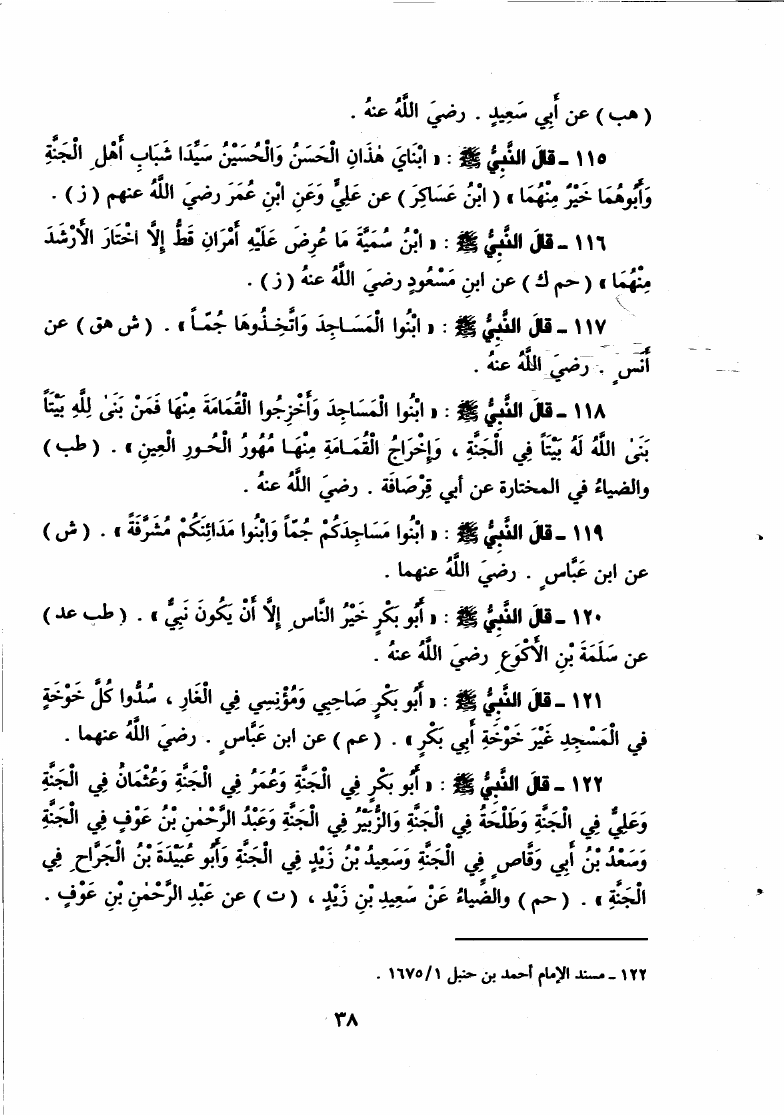 (هب) عن أَبِي سَعِيدٍ . رضيَ اللَّهُ عنهُ .
١١٥ ـ قالَ النَّبِيُّ ﷺ : « ابْنَايَ هٰذَانِ الْحَسَنُ وَالْحُسَيْنُ سَيِّدَا شَبَابِ أَهْلِ الْجَنَّةِ
وَأَبُوهُمَا خَيْرٌ مِنْهُمَا » (ابْنُ عَسَاكِرَ) عن عَلِيٍّ وَعَنِ ابْنِ عُمَرَ رضيَ اللَّهُ عنهم (ز) .
١١٦ ـ قالَ النَّبِيُّ ﷺ : « ابْنُ سُمَيَّةَ مَا عُرِضَ عَلَيْهِ أَمْرَانِ قَطُّ إِلَّا اخْتَارَ الأَرْشَدَ
مِنْهُمَا » (حم ك) عن ابنِ مَسْعُودٍ رضيَ اللَّهُ عنهُ (ز) .
١١٧ ـ قالَ النَّبِيُّ ﷺ : « ابْنُوا الْمَسَاجِدَ وَاتَّخِذُوهَا جُمّاً » . (ش هق) عن
أَنَسٍ . رضيَ اللَّهُ عنهُ .
١١٨ ـ قالَ النَّبِيُّ ﷺ : « ابْنُوا الْمَسَاجِدَ وَأَخْرِجُوا الْقُمَامَةَ مِنْهَا فَمَنْ بَنَىٰ لِلَّهِ بَيْتاً
بَنَىٰ اللَّهُ لَهُ بَيْتاً فِي الْجَنَّةِ ، وَإِخْرَاجُ الْقُمَامَةِ مِنْهَا مُهُورُ الْحُورِ الْعِينِ » . (طب)
والضياءُ في المختارة عن أبي قِرْصَافَة . رضيَ اللَّهُ عنهُ .
١١٩ ـ قالَ النَّبِيُّ ﷺ : « ابْنُوا مَسَاجِدَكُمْ جُمّاً وَابْنُوا مَدَائِنَكُمْ مُشَرَّفَةً » . (ش)
عن ابن عَبَّاسٍ . رضيَ اللَّهُ عنهما .
١٢٠ ـ قالَ النَّبِيُّ ﷺ : « أَبُو بَكْرٍ خَيْرُ النَّاسِ إِلَّا أَنْ يَكُونَ نَبِيٌّ » . (طب عد)
عن سَلَمَةَ بْنِ الأَكْوَعِ رضيَ اللَّهُ عنهُ .
١٢١ ـ قالَ النَّبِيُّ ﷺ : « أَبُو بَكْرٍ صَاحِبِي وَمُؤْنِسِي فِي الْغَارِ ، سُدُّوا كُلَّ خَوْخَةٍ
في الْمَسْجِدِ غَيْرَ خَوْخَةِ أَبِي بَكْرٍ » . (عم) عن ابن عَبَّاسٍ . رضيَ اللَّهُ عنهما .
١٢٢ ـ قالَ النَّبِيُّ ﷺ : « أَبُو بَكْرٍ فِي الْجَنَّةِ وَعُمَرُ فِي الْجَنَّةِ وَعُثْمَانُ فِي الْجَنَّةِ
وَعَلِيٌّ فِي الْجَنَّةِ وَطَلْحَةُ فِي الْجَنَّةِ وَالزُّبَيْرُ فِي الْجَنَّةِ وَعَبْدُ الرَّحْمٰنِ بْنُ عَوْفٍ فِي الْجَنَّةِ
وَسَعْدُ بْنُ أَبِي وَقَّاصٍ فِي الْجَنَّةِ وَسَعِيدُ بْنُ زَيْدٍ فِي الْجَنَّةِ وَأَبُو عُبَيْدَةَ بْنُ الْجَرَّاحِ فِي
الْجَنَّةِ » . (حم) والضِّياءُ عَنْ سَعِيدِ بْنِ زَيْدٍ ، (ت) عن عَبْدِ الرَّحْمٰنِ بْنِ عَوْفٍ .
١٢٢ ـ مسند الإمام أحمد بن حنبل ١ / ١٦٧٥ .
٣٨